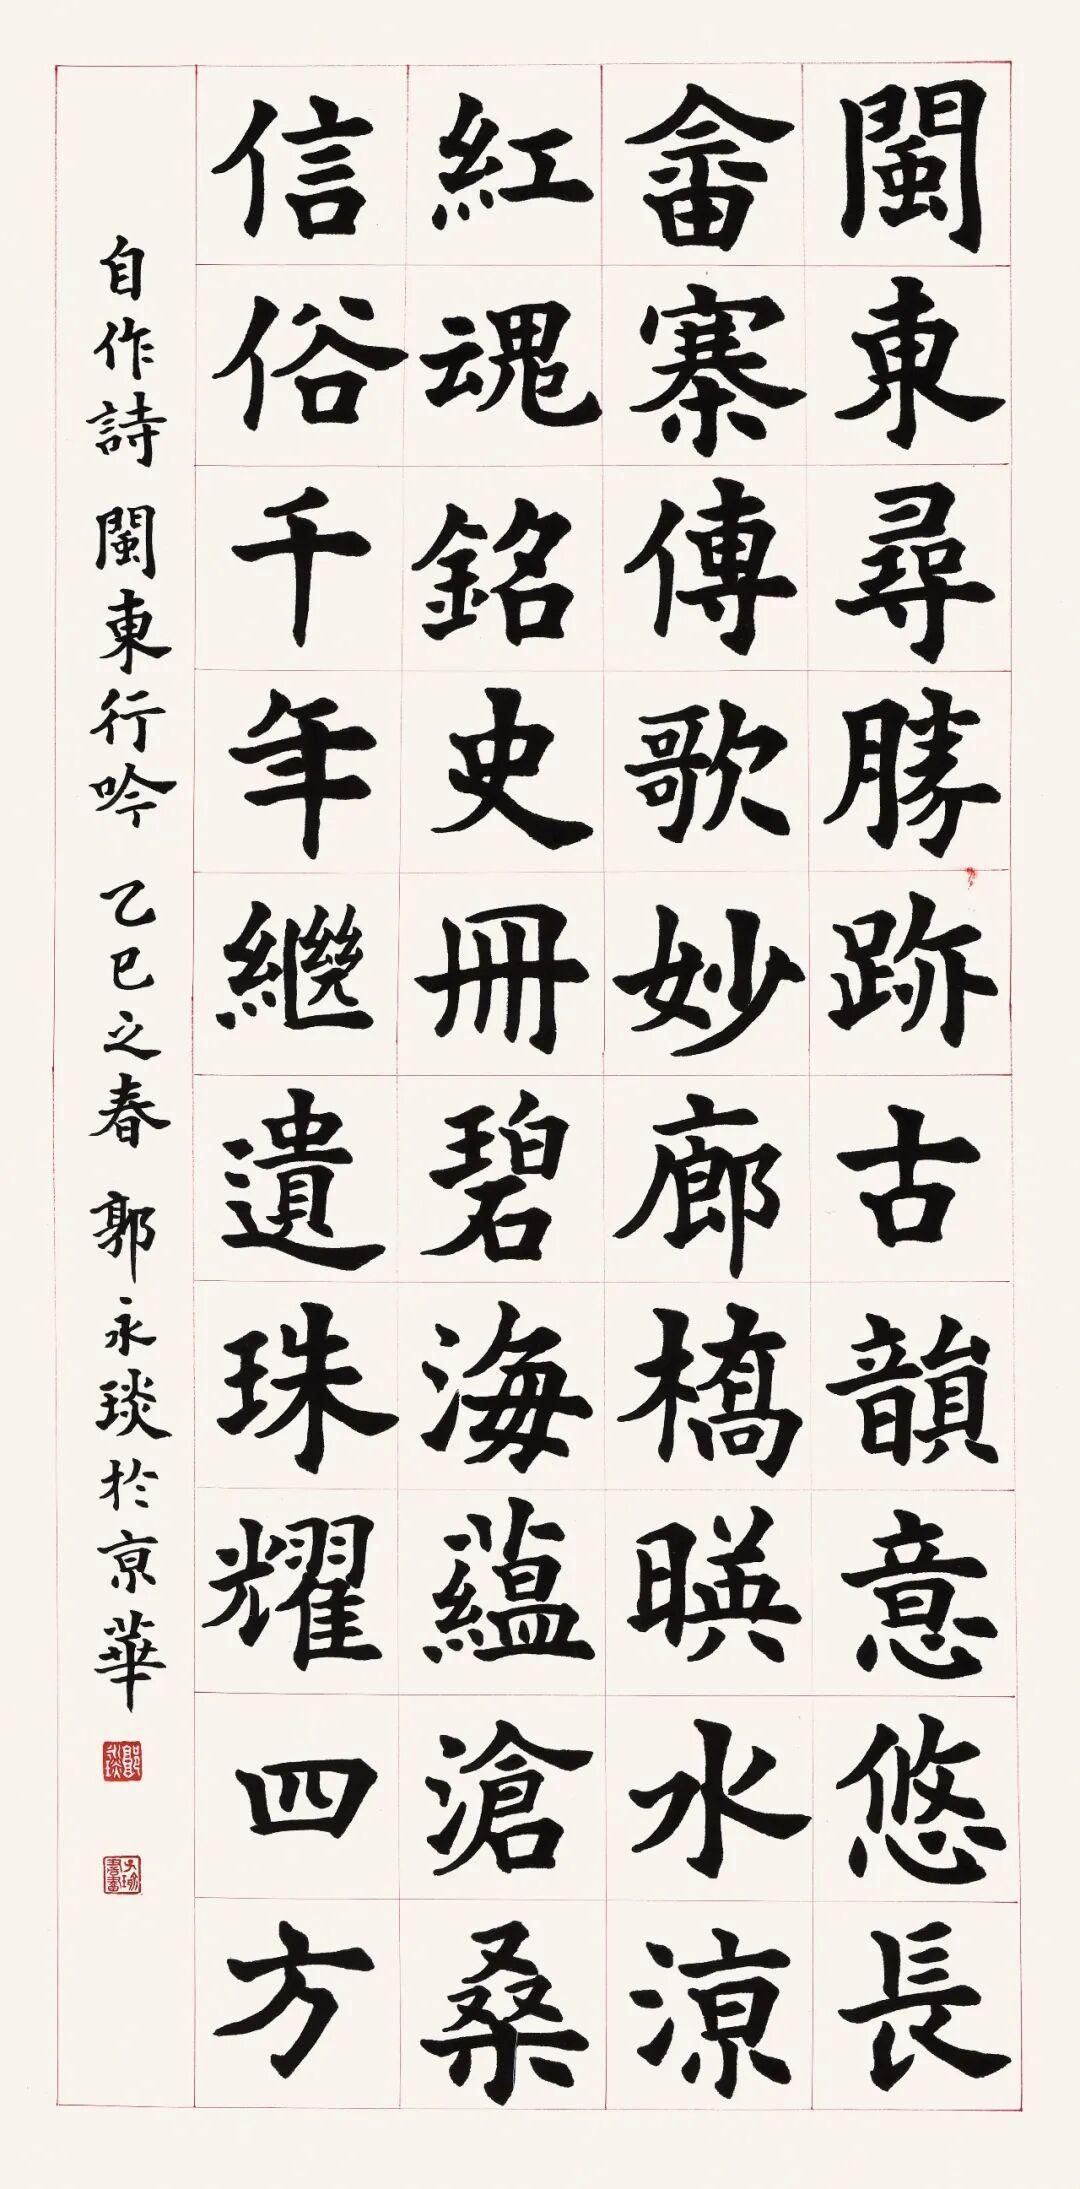 閩東尋勝跡古韻意悠長
畲寨傳歌妙廊橋暎水涼
紅魂銘史冊碧海蘊滄桑
信俗千年繼遺珠耀四方
自作詩 閩東行吟 乙巳之春 郭永琰於京華
郭永琰